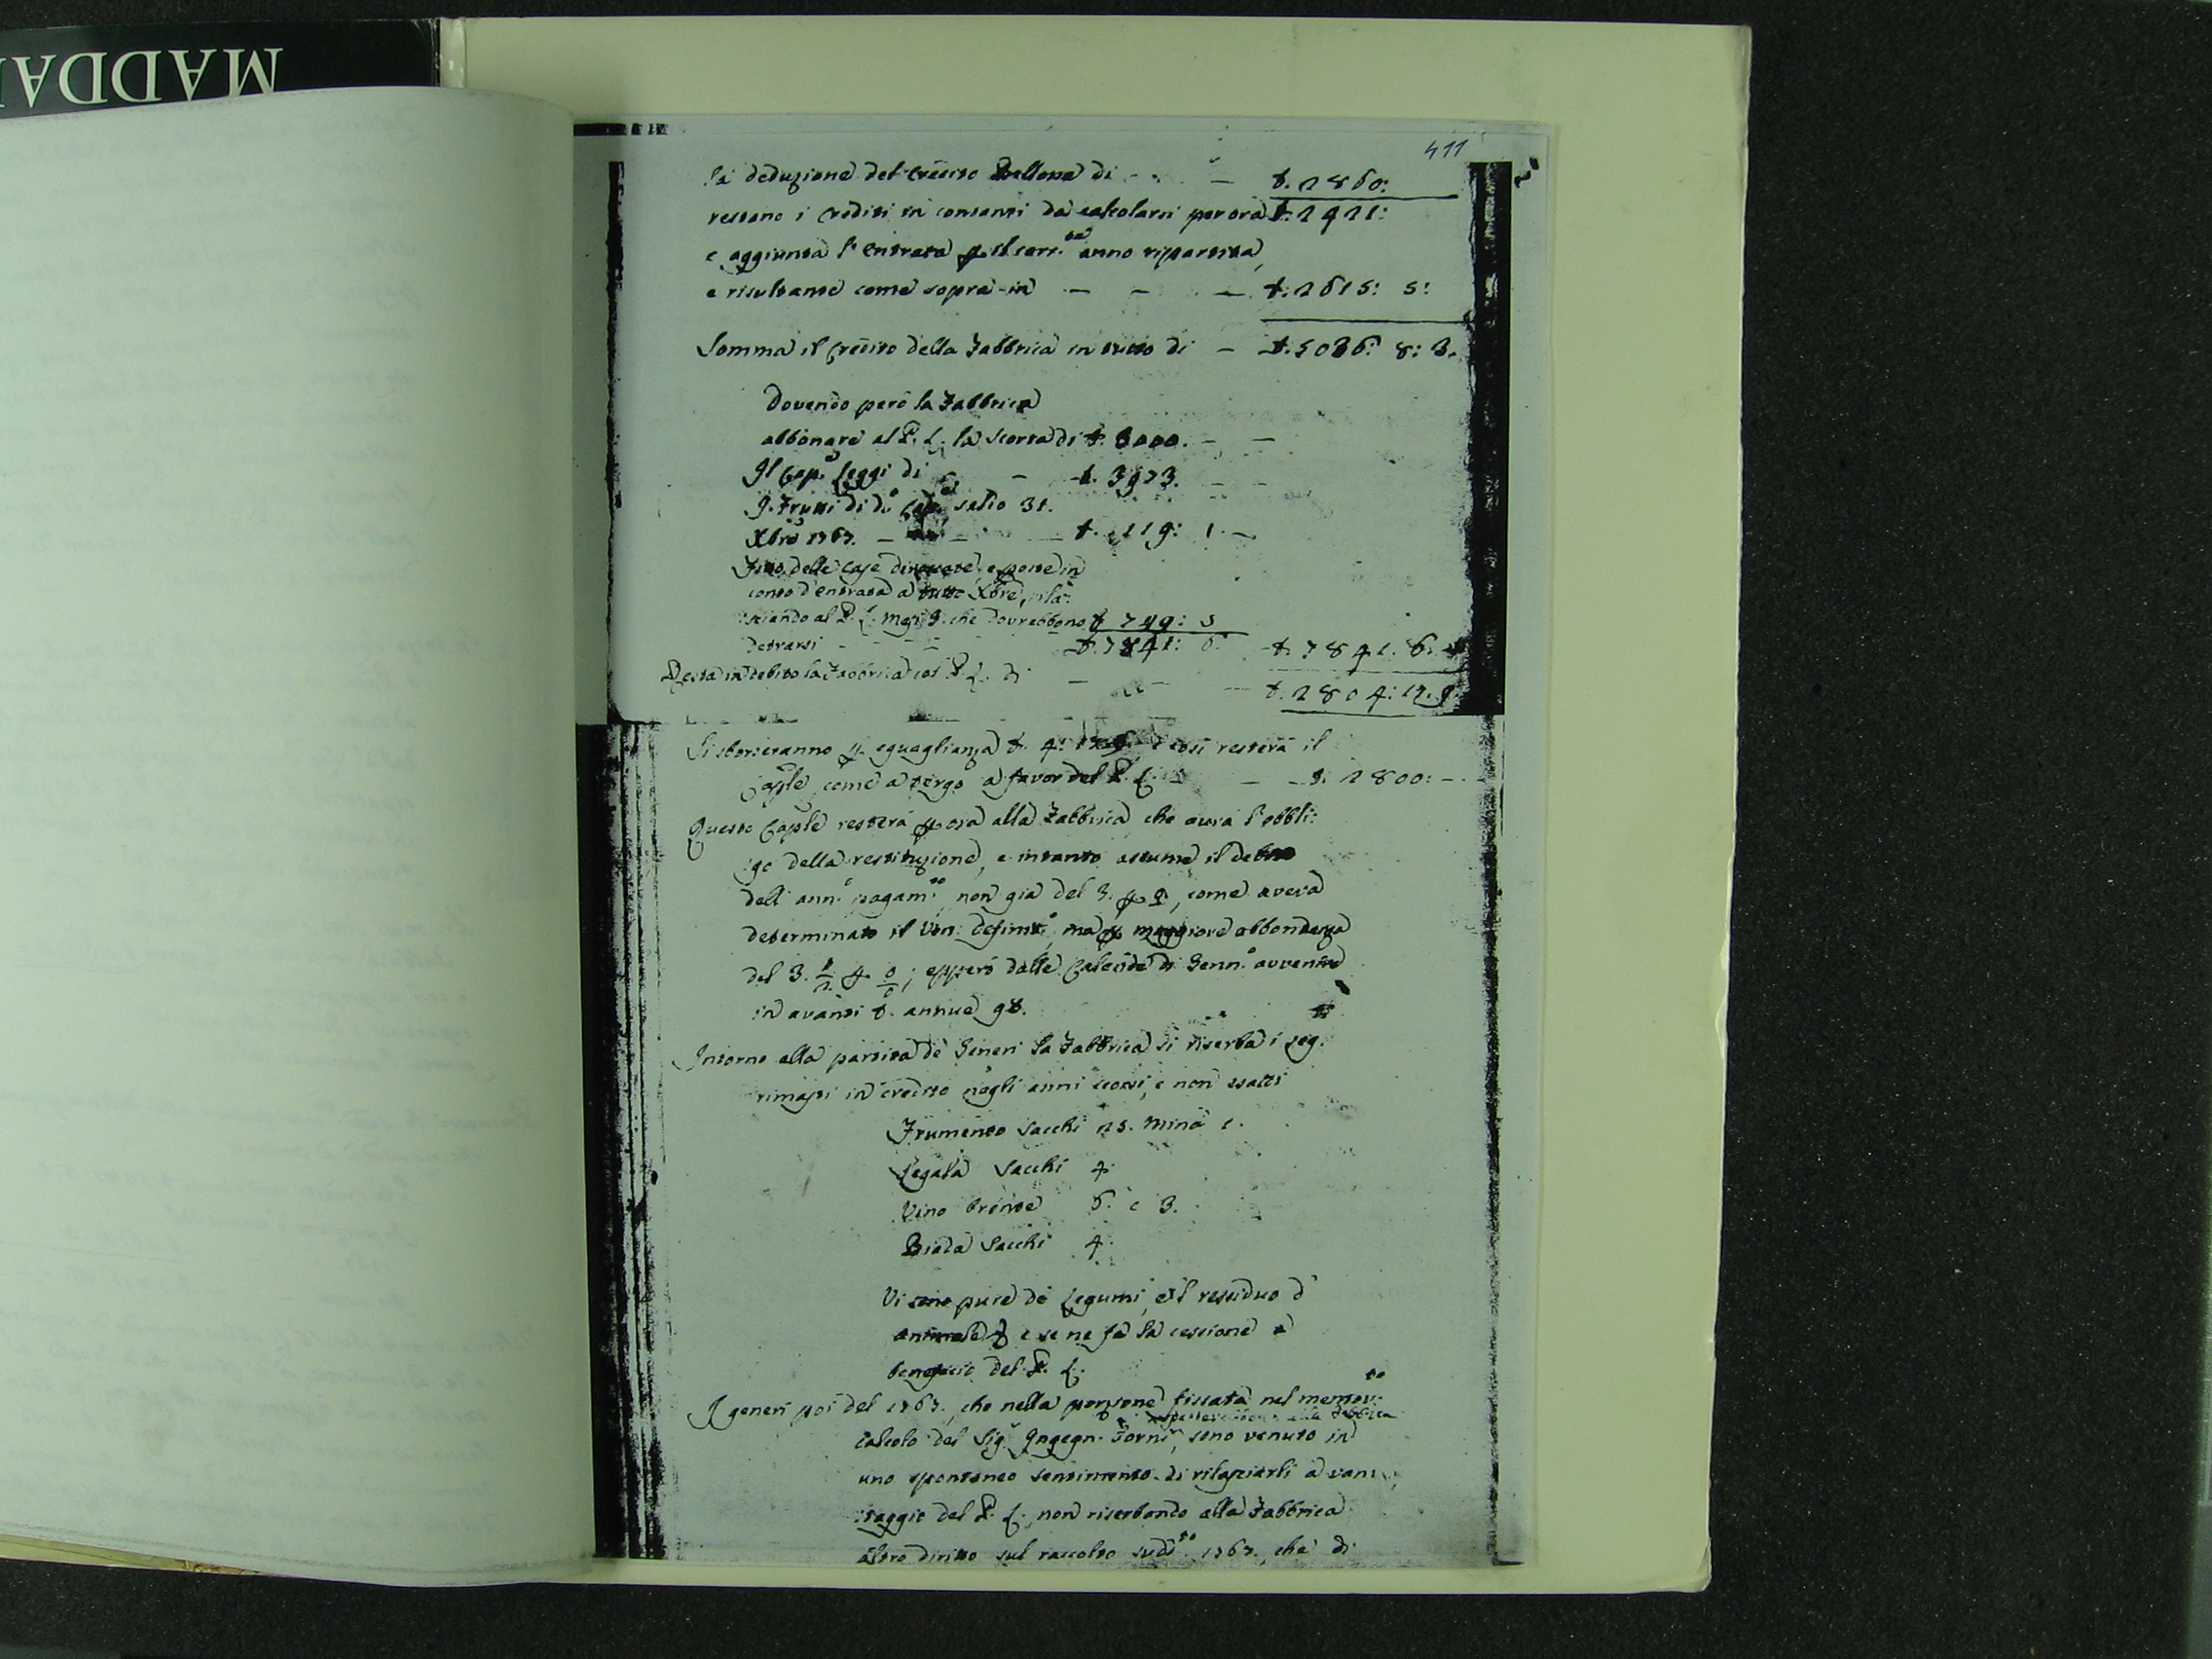 MADDA
411
la deduzione del credito Bellone di — £. 2860:
restano i crediti in contanti da calcolarsi per ora £. 2921:
e aggiunta l'entrata per il corr.te anno ripartita,
e risultante come sopra in — — — £. 2615: 5:
Somma il credito della Fabbrica in tutto di — £. 5036: 8: 3.
Dovendo però la Fabbrica
abbonare al P. L. la scorta di £. 3000. — —
Il Cap.e Leggi di — £. 3973. — —
I frutti di d.o Cap.e sello 31.
Xbre 1767. — — £. 119: 1. —
Fitto delle Case dinotate, e poste in
conto d'entrata a tutto Xbre, rila:
:sciando al P. L. mesi 9. che dovrebbono £ 749: 5
detrarsi — — £. 7841: 6. £. 7841. 6.
Resta in debito la Fabbrica col P. L. di — — — £. 2804: 17. 9.
Si sborseranno per eguaglianza £. 4: 17. 9. e così resterà il
Cap̃le come a tergo a favor del P. L. — — £. 2800: — . —
Questo Cap̃le resterà per ora alla Fabbrica, che avrà l'obbli:
:go della restituzione, e intanto assume il debito
dell'ann.o pagam.to, non già del 3. per %, come aveva
determinato il Ven. Definit.o, ma per maggiore abbondanza
del 3. 1/2 per 0/0; epperò dalle Calende di Genn.o avvenire
in avanti £. annue 98.
Intorno alla partita de Generi la Fabbrica si riserba i seg.
rimasti in credito negli anni scorsi, e non esatti
Frumento Sacchi 25. mina 1.
Segala Sacchi 4.
Vino brente 6. e 3.
Biada Sacchi 4.
Vi sono pure de Legumi, e il residuo d'
annuale e se ne fa la cessione a
beneficio del P. L.
I generi poi del 1767., che nella porzione fissata nel mentov.to
rispettivamente alla Fabbrica
calcolo del Sig.r Ingegn. Forni, sono venuto in
uno spontaneo sentimento di rilasciarli a van:
:taggio del P. L., non riserbando alla Fabbrica
altro diritto sul raccolto sud.to 1767., che di